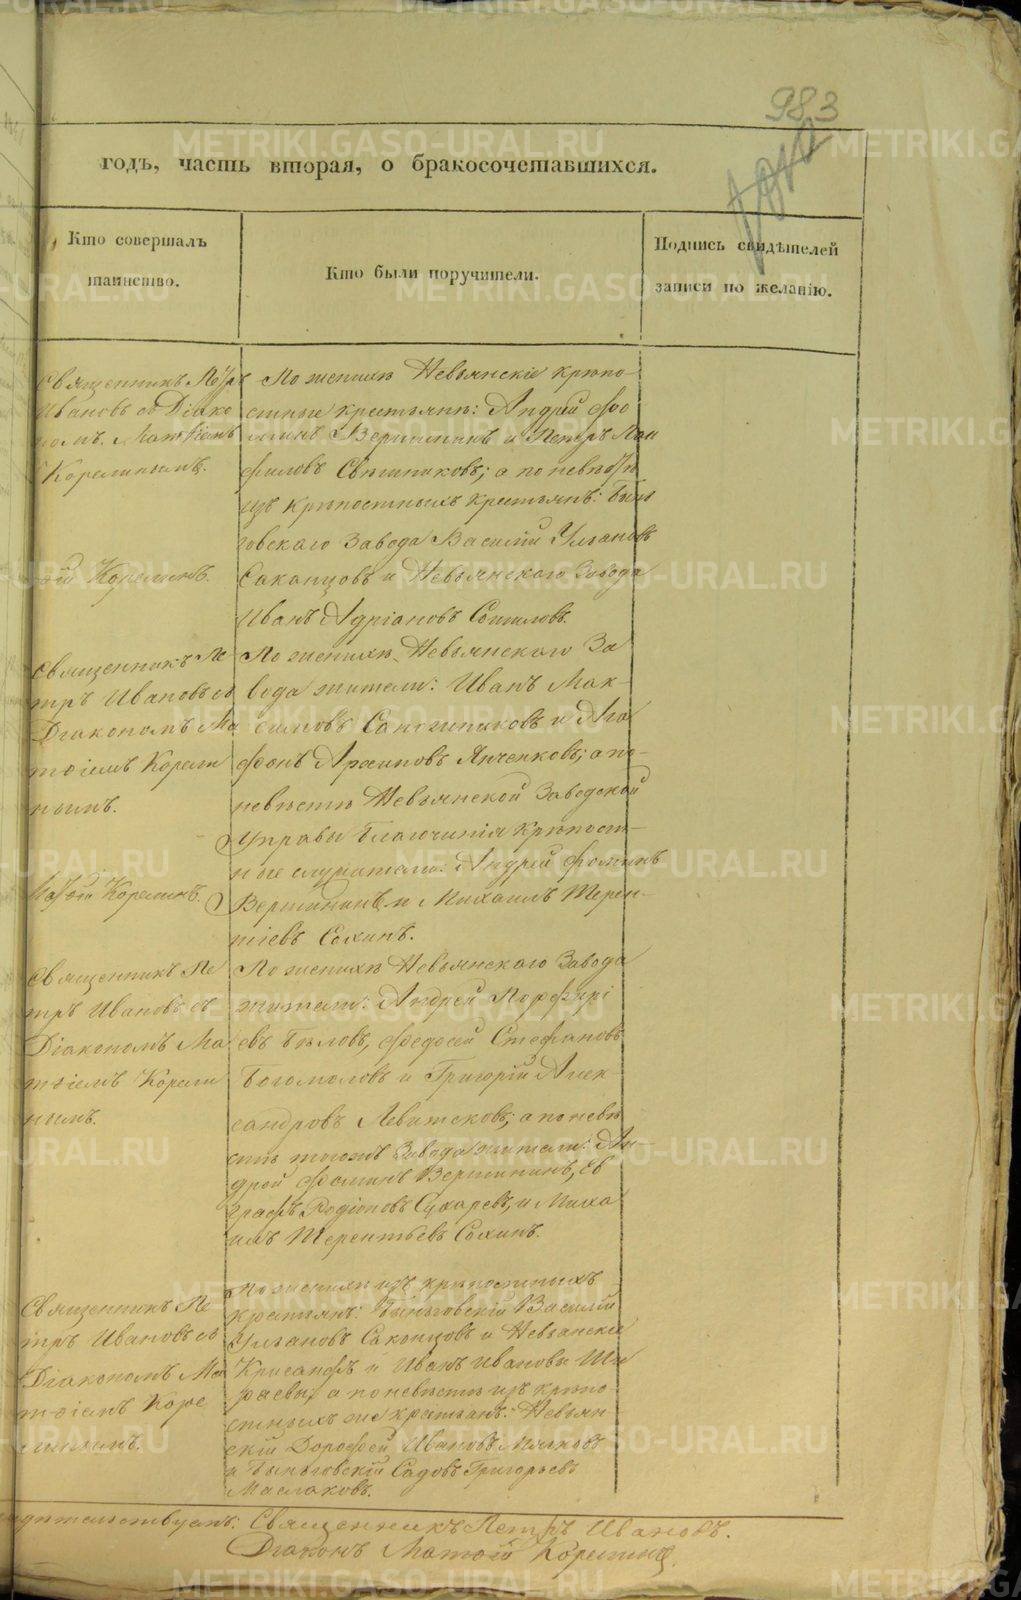 983
годъ, часть вторая, о бракосочетавшихся.
Кто совершалъ
таинство.
Кто были поручители.
Подпись свидѣтелей
записи по желанію.
Священникъ Петръ
Ивановъ съ Діако
номъ Матѳіемъ
Корелинымъ.
Корелинъ.
По женихѣ Невьянскіе крѣпо
стные крестьяне: Андрей Ѳо
минъ Вершининъ и Петръ Пан
филовъ Свѣшниковъ; а по невѣстѣ
изъ крѣпостныхъ крестьянъ: Бынь
говскаго завода Василій Ульяновъ
Саканцовъ и Невьянскаго завода
Иванъ Адріановъ
Священникъ Пе
тръ Ивановъ съ
Діакономъ Ма
тѳіемъ Корели
нымъ.
Матѳій Корелинъ.
По женихѣ Невьянскаго За
вода жители: Иванъ Мак-
симовъ Сапожниковъ и Ага
фонъ Архиповъ Янченковъ; а по-
невѣстѣ Невьянской Заводской
Управы благочинія крѣпост-
ные служители: Андрей Ѳоминъ
Вершининъ и Михаилъ Терен-
тіевъ Сохинъ.
Священникъ Пе
тръ Ивановъ съ
Діакономъ Ма
тѳіемъ Корели
нымъ.
По женихѣ Невьянскаго Завода
жители: Андрей Порфирі
евъ Бѣловъ, Ѳедосей Стефановъ
Богомоловъ и Григорій Алек-
сандровъ а по невѣ
стѣ тогожъ Завода жители: Ан-
дрей Ѳоминъ Вершининъ, Ев
графъ Родіоновъ Сухаревъ, и Миха
илъ Терентьевъ Сохинъ.
Священникъ Пе
тръ Ивановъ съ
Діакономъ Ма
тѳіемъ Коре
линымъ.
По женихѣ изъ крѣпостныхъ
крестьянъ: Быньговскій Василій
Ульяновъ Саконцовъ и Невьянскіе
Крисанфъ и Иванъ Ивановы Ши
раевы, а по невѣстѣ изъ крѣпо
стныхъ же крестьянъ: Невьян
скій Дорофей Ивановъ Мягковъ
и Быньговскій Садовъ Григорьевъ
Маслаковъ.
Священникъ Петръ Ивановъ.
Діаконъ Матѳій Корелинъ.
METRIKI.GASO-URAL.RU